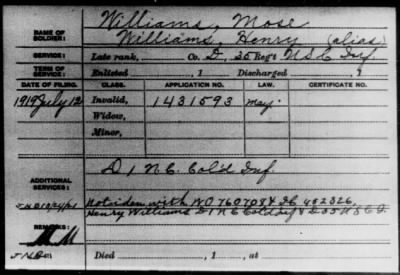 NAME OF SOLDIER: Williams, Mose
Williams, Henry (alias)
SERVICE: Late rank, Co. D, 35 Reg't U.S.C. Inf.
TERM OF SERVICE: Enlisted , 1 Discharged , 1
DATE OF FILING. CLASS. APPLICATION NO. LAW. CERTIFICATE NO.
1919 July 12 Invalid, 1431593 May.
Widow,
Minor,
D 1 N.C. Cold Inf.
ADDITIONAL SERVICES:
Not iden with WO 760708 & IC 452326
Henry Williams D 1 N C Cold Inf & D 35 U S C I.
REMARKS:
Died , 1 , at